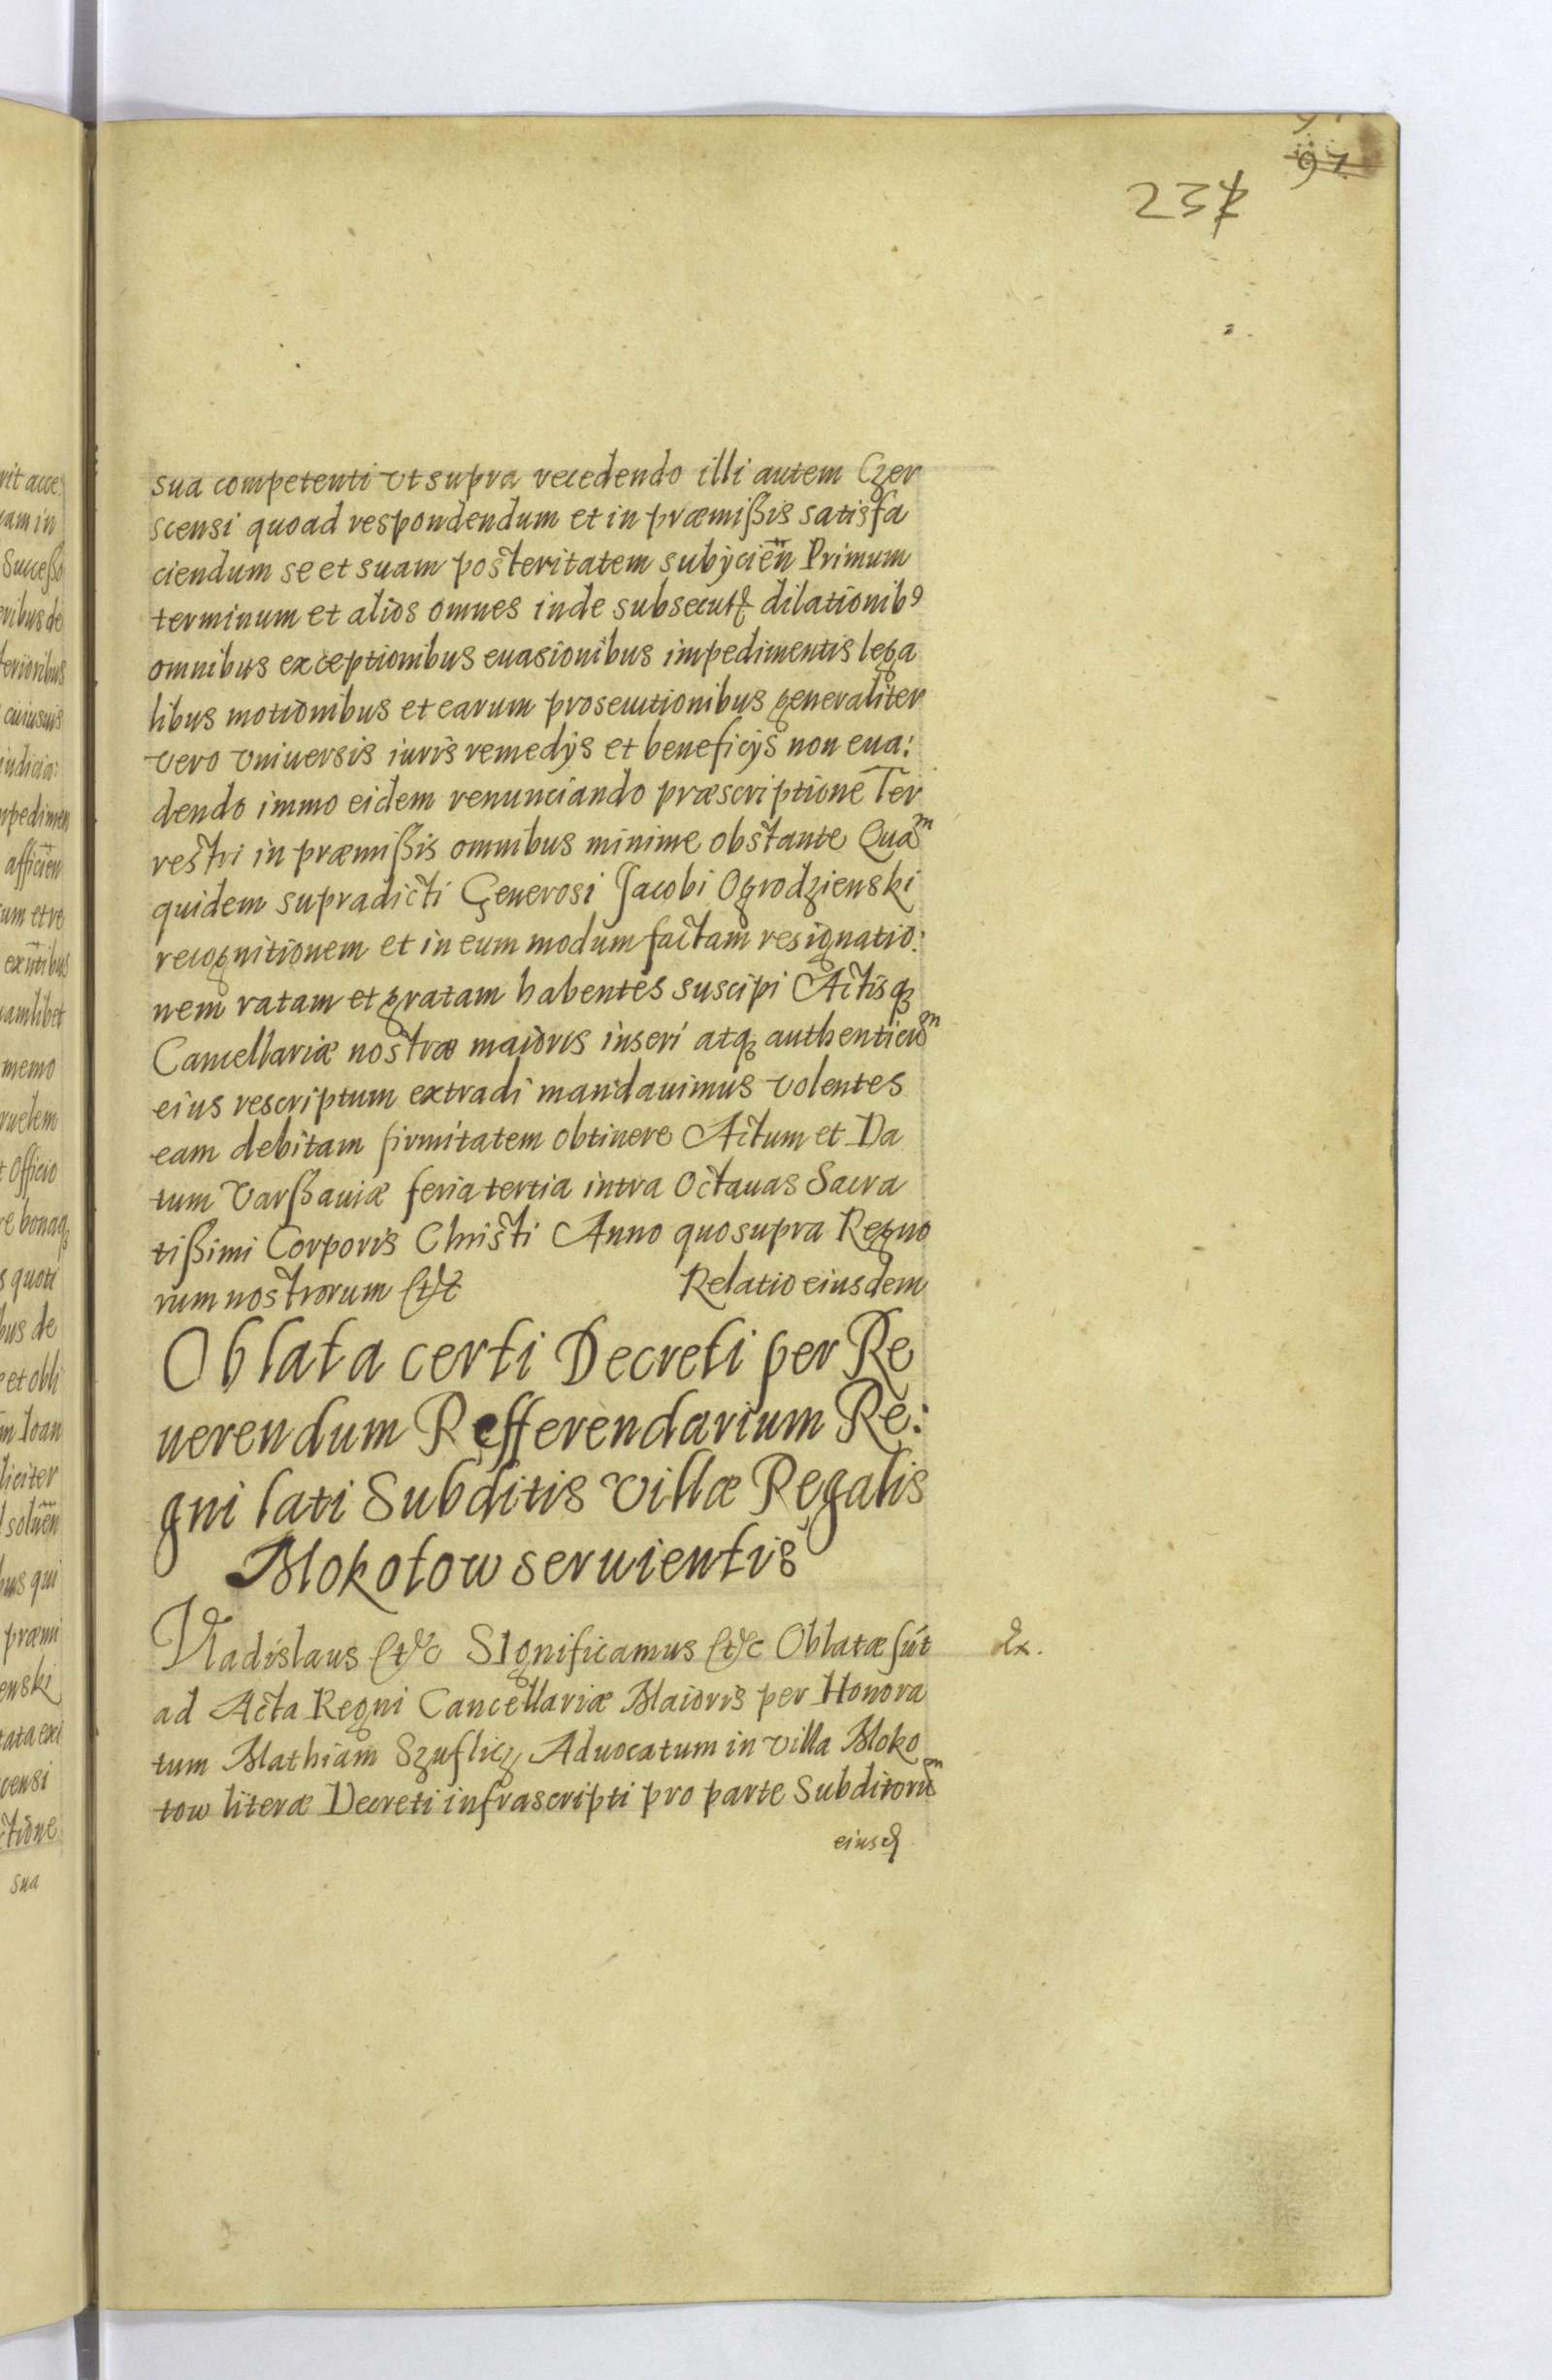 97
234
sua competenti vt supra recedendo illi autem Czer
scensi quoad respondendum et in præmißis satisfa
ciendum se et suam posteritatem subÿcieñ Primum
terminum et alios omnes inde subsecutꝭ dilationibꝰ
omnibus exceptionibus euasionibus impedimentis lega
libus motionibus et earum prosecutionibus generaliter
vero vniuersis iuris remedÿs et beneficÿs non eua:
dendo immo eidem renunciando præscriptione Ter
restri in præmißis omnibus minime obstante Quaᵐ
quidem supradicti Generosi Jacobi Ogrodzienski
recognitionem et in eum modum factam resignatio:
nem ratam et gratam habentes suscipi Actisqꝫ
Cancellariæ nostræ maioris inseri atqꝫ authenticuᵐ
eius rescriptum extradi mandauimus volentes
eam debitam firmitatem obtinere Actum et Da
tum Varßauiæ feria tertia intra Octauas Sacra
tißimi Corporis Christi Anno quo supra Regno
rum nostrorum etc Relatio eiusdem
Oblata certi Decreti per Re
uerendum Refferendarium Re:
gni lati Subditis villæ Regalis
Mokotow seruientis
Vladislaus etc Significamus etc Oblatæ sũt
ad Acta Regni Cancellariæ Maioris per Honora
tum Mathiam Szuflicz Aduocatum in villa Moko
tow literæ Decreti infrascripti pro parte Subditoruᵐ
eiusd